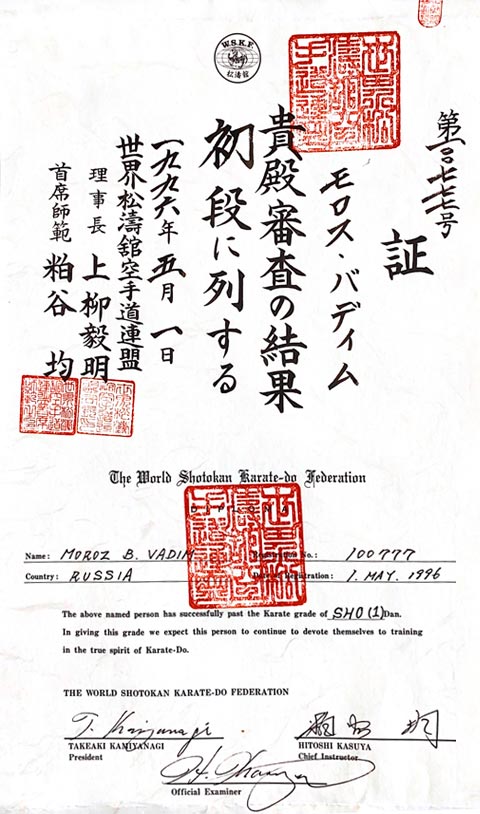 W.S.K.F.
松涛館
第一〇〇七七七号
証
モロス・バディム
貴殿審査の結果
初段に列する
一九九六年五月一日
世界松濤舘空手道連盟
理事長 上柳毅明
首席師範 粕谷 均
The World Shotokan Karate-do Federation
DIPLOMA
Name: MOROZ B. VADIM Registration No.: 100777
Country: RUSSIA Date of Registration: 1. MAY. 1996
The above named person has successfully past the Karate grade of SHO (1) Dan.
In giving this grade we expect this person to continue to devote themselves to training
in the true spirit of Karate-Do.
THE WORLD SHOTOKAN KARATE-DO FEDERATION
T. Kamiyanagi 粕谷 均
TAKEAKI KAMIYANAGI HITOSHI KASUYA
President Chief Instructor
H. Kasuya
Official Examiner